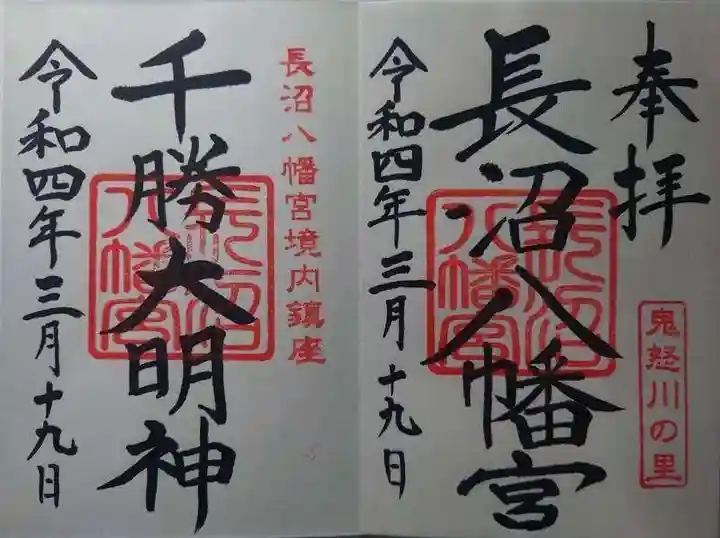 奉拝
長沼八幡宮
長沼八幡宮
鬼怒川の里
令和四年三月十九日
長沼八幡宮境内鎮座
千勝大明神
長沼八幡宮
令和四年三月十九日